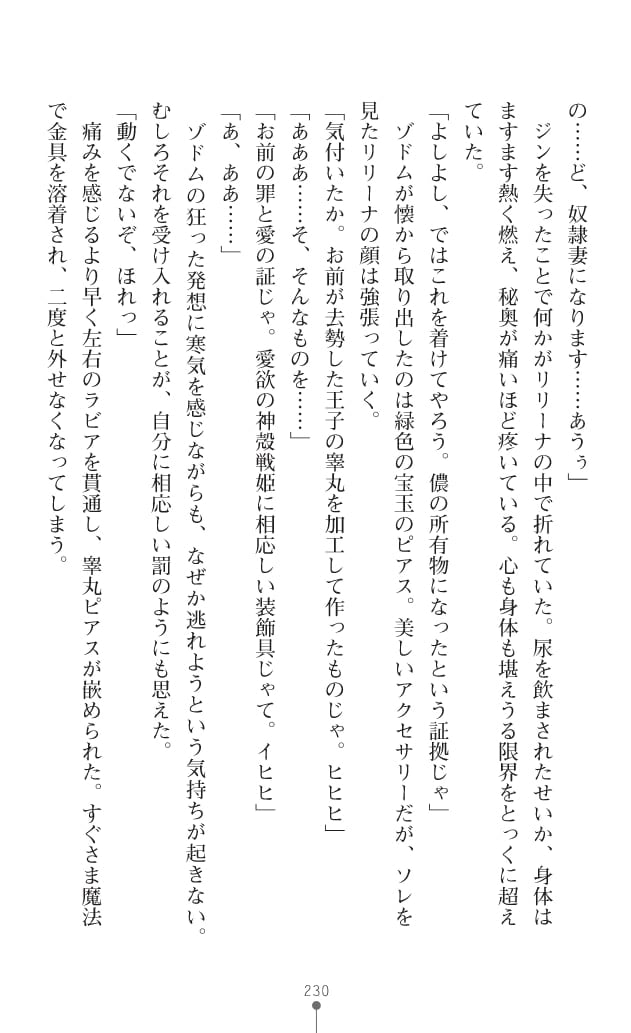 の……ど、奴隷妻になります……あうぅ」
　ジンを失ったことで何かがリリーナの中で折れていた。尿を飲まされたせいか、身体は
ますます熱く燃え、秘奥が痛いほど疼いている。心も身体も堪えうる限界をとっくに超え
ていた。
「よしよし、ではこれを着けてやろう。儂の所有物になったという証拠じゃ」
　ゾドムが懐から取り出したのは緑色の宝玉のピアス。美しいアクセサリーだが、ソレを
見たリリーナの顔は強張っていく。
「気付いたか。お前が去勢した王子の睾丸を加工して作ったものじゃ。ヒヒヒ」
「あああ……そ、そんなものを……」
「お前の罪と愛の証じゃ。愛欲の神殻戦姫に相応しい装飾具じゃて。イヒヒ」
「あ、ああ……」
　ゾドムの狂った発想に寒気を感じながらも、なぜか逃れようという気持ちが起きない。
むしろそれを受け入れることが、自分に相応しい罰のようにも思えた。
「動くでないぞ、ほれっ」
　痛みを感じるより早く左右のラビアを貫通し、睾丸ピアスが嵌められた。すぐさま魔法
で金具を溶着され、二度と外せなくなってしまう。
230